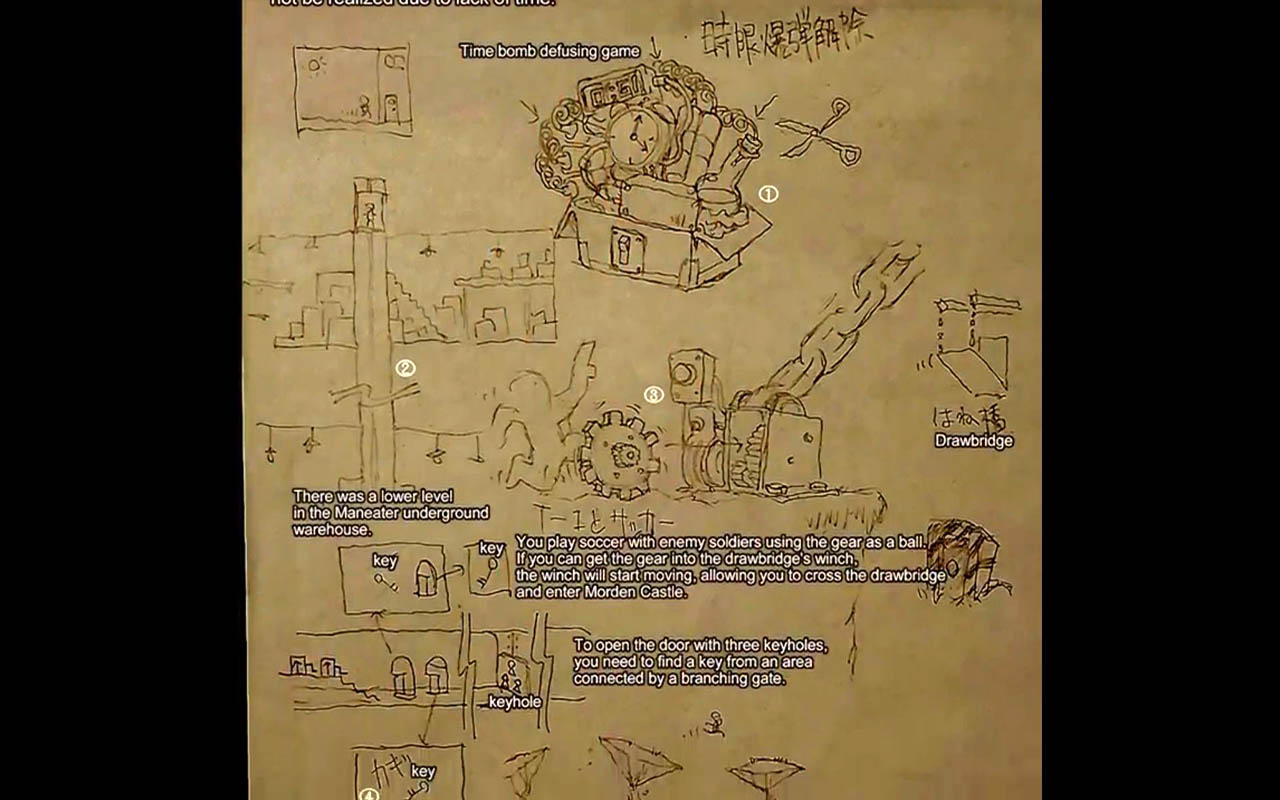 not be realized due to lack of time.
Time bomb defusing game
時限爆弾解除
①
②
③
はね橋
Drawbridge
There was a lower level
in the Maneater underground
warehouse.
サッカー
You play soccer with enemy soldiers using the gear as a ball.
If you can get the gear into the drawbridge's winch,
the winch will start moving, allowing you to cross the drawbridge
and enter Morden Castle.
key
key
To open the door with three keyholes,
you need to find a key from an area
connected by a branching gate.
keyhole
カギ
key
④